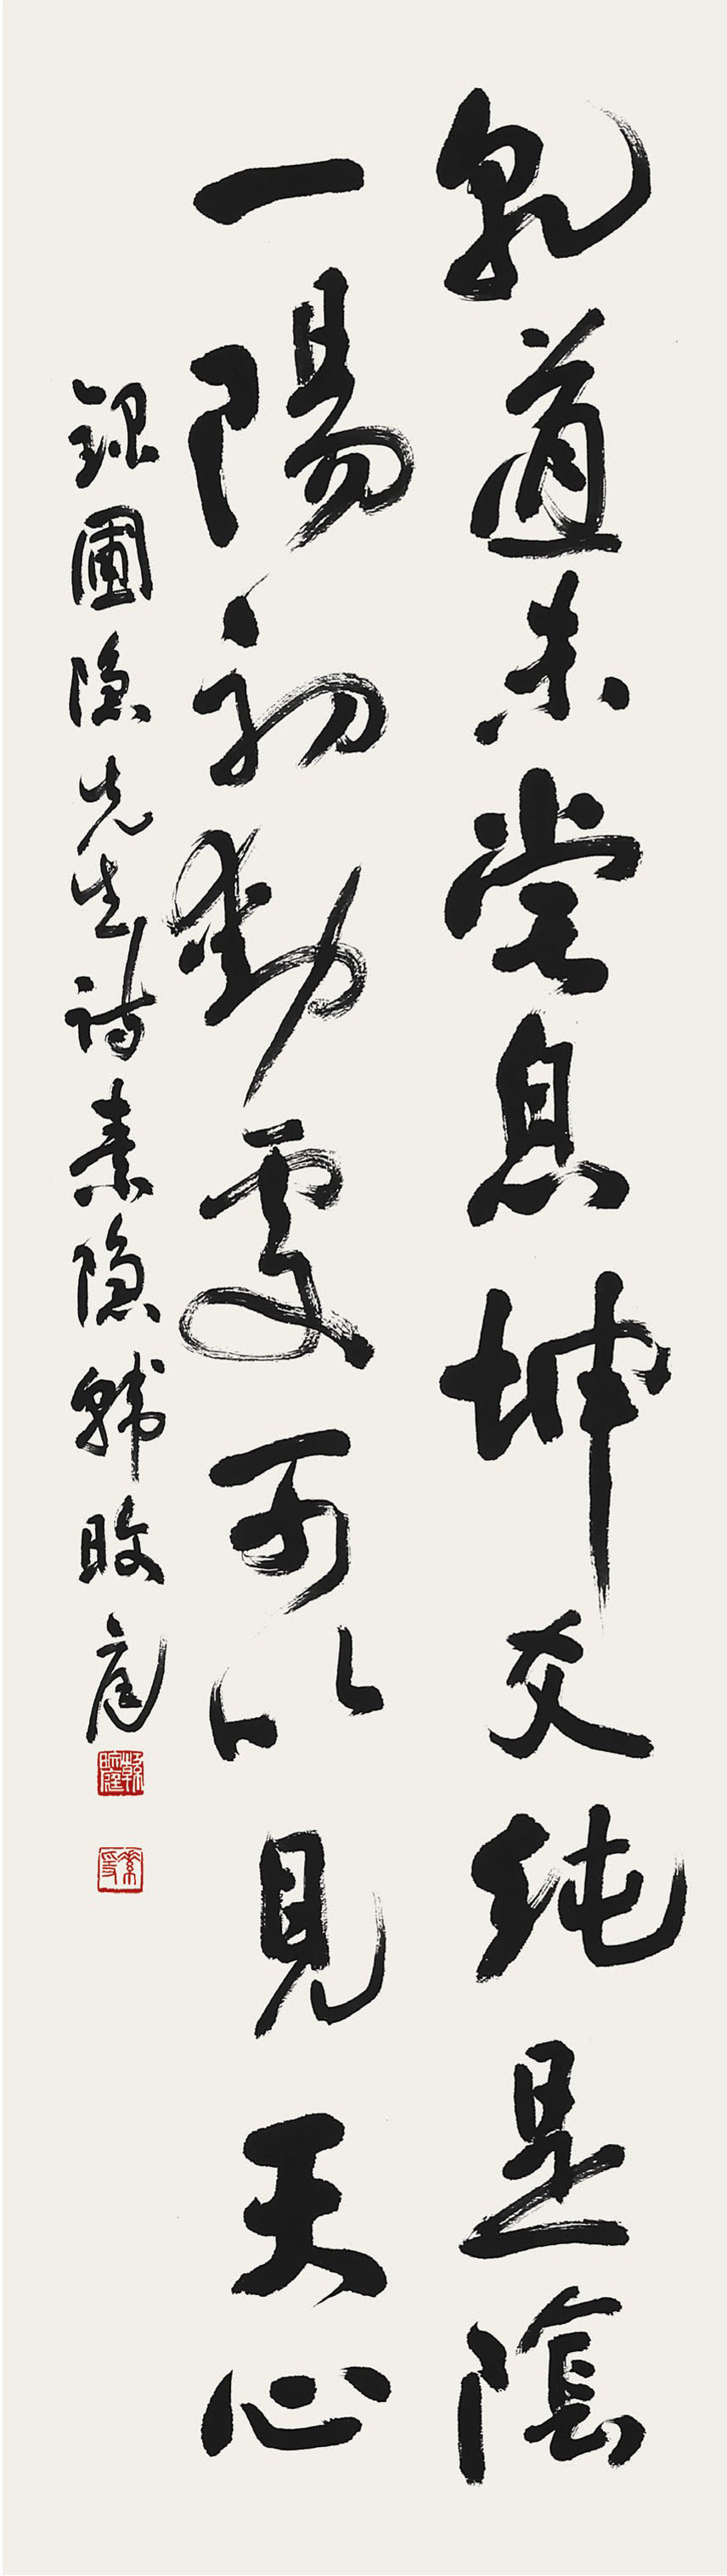 乾道未嘗息坤爻純是陰
一陽初動處可以見天心
錄圃隱先生詩素隱韓旼庭